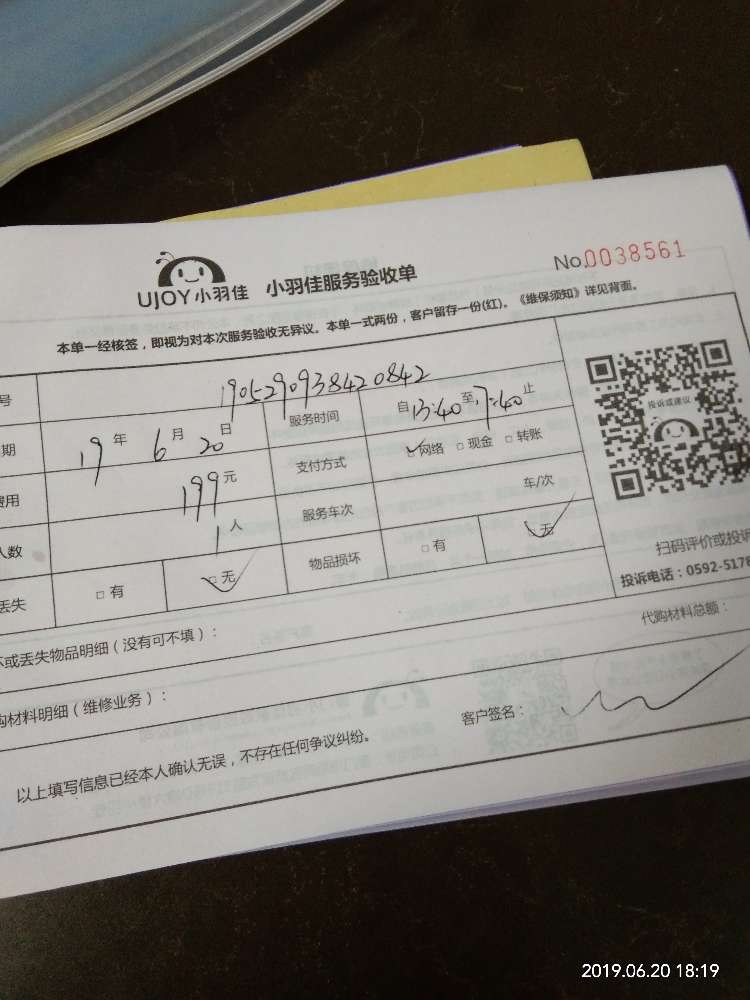 UJOY小羽佳 小羽佳服务验收单 No.0038561
本单一经核签，即视为对本次服务验收无异议。本单一式两份，客户留存一份(红)。《维保须知》详见背面。
号 1905290938420842
期 19年6月20日 服务时间 自13:40至17:40止
费用 199元 支付方式 □网络 □现金 □转账
人数 1人 服务车次 车/次
丢失 □有 □无 物品损坏 □有 □无
投诉或建议
扫码评价或投诉
投诉电话：0592-5178
坏或丢失物品明细（没有可不填）：
代购材料总额：
购材料明细（维修业务）：
客户签名：
以上填写信息已经本人确认无误，不存在任何争议纠纷。
2019.06.20 18:19